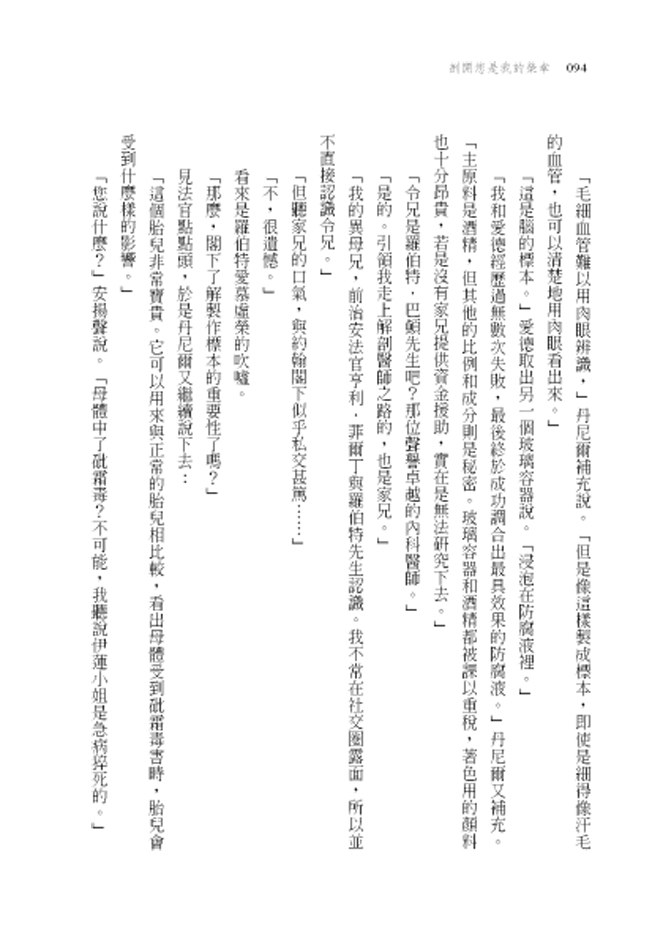 剖開您是我的榮幸 094
「毛細血管難以用肉眼辨識，」丹尼爾補充說。「但是像這樣製成標本，即使是細得像汗毛
的血管，也可以清楚地用肉眼看出來。」
「這是腦的標本。」愛德取出另一個玻璃容器說。「浸泡在防腐液裡。」
「我和愛德經歷過無數次失敗，最後終於成功調合出最具效果的防腐液。」丹尼爾又補充。
「主原料是酒精，但其他的比例和成分則是秘密。玻璃容器和酒精都被課以重稅，著色用的顏料
也十分昂貴，若是沒有家兄提供資金援助，實在是無法研究下去。」
「令兄是羅伯特．巴頓先生吧？那位聲譽卓越的內科醫師。」
「是的。引領我走上解剖醫師之路的，也是家兄。」
「我的異母兄，前治安法官亨利．菲爾丁與羅伯特先生認識。我不常在社交圈露面，所以並
不直接認識令兄。」
「但聽家兄的口氣，與約翰閣下似乎私交甚篤……」
「不，很遺憾。」
看來是羅伯特愛慕虛榮的吹噓。
「那麼，閣下了解製作標本的重要性了嗎？」
見法官點點頭，於是丹尼爾又繼續說下去：
「這個胎兒非常寶貴。它可以用來與正常的胎兒相比較，看出母體受到砒霜毒害時，胎兒會
受到什麼樣的影響。」
「您說什麼？」安揚聲說。「母體中了砒霜毒？不可能，我聽說伊蓮小姐是急病猝死的。」